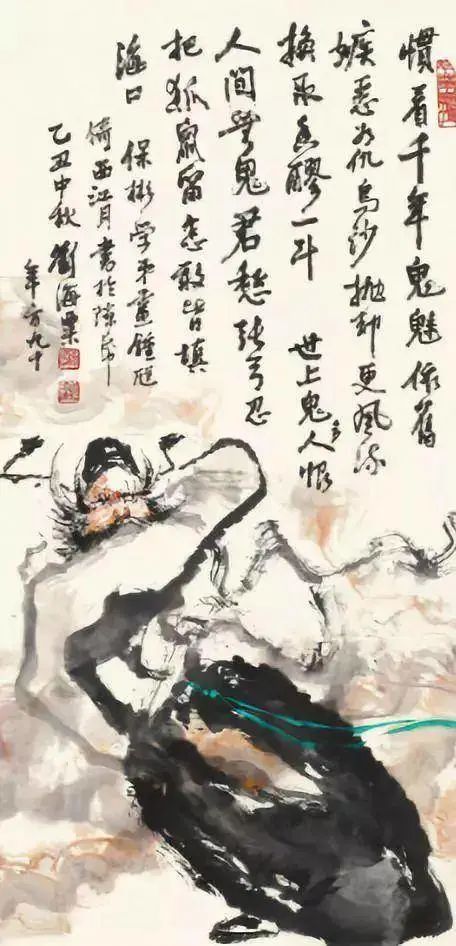 慣看千年鬼魅依舊
嫉惡为仇烏沙抛却更風流
換取香醪一斗 世上鬼多人恨
人間無鬼君愁 張弓忍
把狐鼠留怎敢皆填
海口 保彬學弟畫鍾馗
倚西江月書於
乙丑中秋劉海粟
年方九十